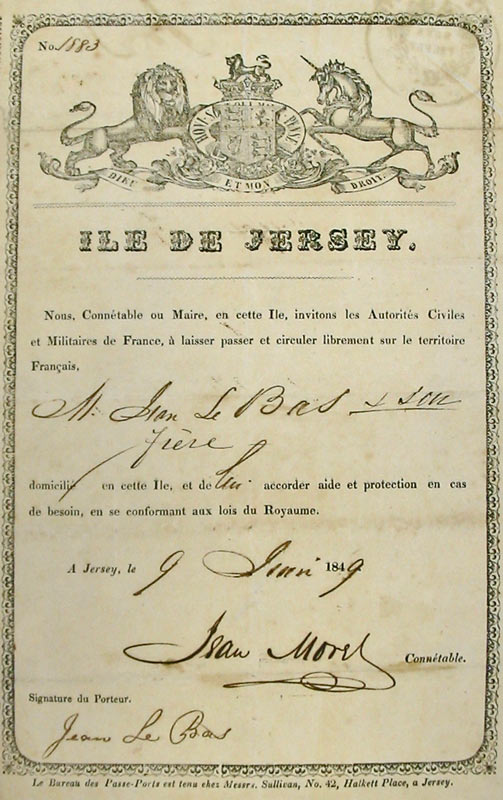 No. 1883
HONI SOIT QUI MAL Y PENSE
DIEU ET MON DROIT.
ILE DE JERSEY.
Nous, Connétable ou Maire, en cette Ile, invitons les Autorités Civiles
et Militaires de France, à laisser passer et circuler librement sur le territoire
Français,
M. Jean Le Bas & son
frère
domicilié en cette Ile, et de lui accorder aide et protection en cas
de besoin, en se conformant aux lois du Royaume.
A Jersey, le 9 Juin 1849
Jean Morel Connétable.
Signature du Porteur.
Jean Le Bas
Le Bureau des Passe-Ports est tenu chez Messrs. Sullivan, No. 42, Halkett Place, a Jersey.